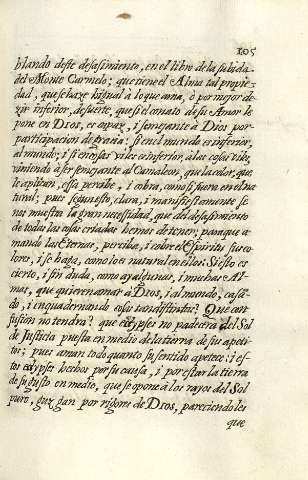 105
blando deste desasimiento, en el libro de la subida
del Monte Carmelo; que tiene el Alma tal propie-
dad, que se haze higual a lo que ama, ò por mejor de-
zir inferior, de suerte, que si el conato de su Amor le
pone en DIOS, es capaz, i semejante à Dios por
participacion de gracia: si en el mundo es inferior,
al mundo; i si en cosas viles es inferior, à las cosas viles,
viniendo à ser semejante al Camaleon, que la color, que
le aplican, essa percibe, i cobra, como si fuera en el na
tural; pues segun esto, clara, i manifiestamente se
nos muestra la gran necessidad, que del desasimiento
de todas las cosas criadas hemos de tener; para que a-
mando las Eternas, perciba, i cobre el Espiritu sus co-
lores, i se haga, como lo es natural en ellos: Si esto es
cierto, i sin duda, como ay algunas, i muchas Al-
mas, que quieren amar à DIOS, i al mundo, casã-
do, i inquadernando cosas tan distintas? Que con
fusiòn no tendra? que eclypses no padecerà del Sol
de Justicia puesta en medio de la tierra de sus apeti
tos; pues aman todo quanto su sentido apetece; i es-
tos eclypses hechos por su causa, i por estar la tierra
de su gusto en medio, que se opone à los rayos del Sol
puro, juzgan por rigores de DIOS, pareciendoles
que